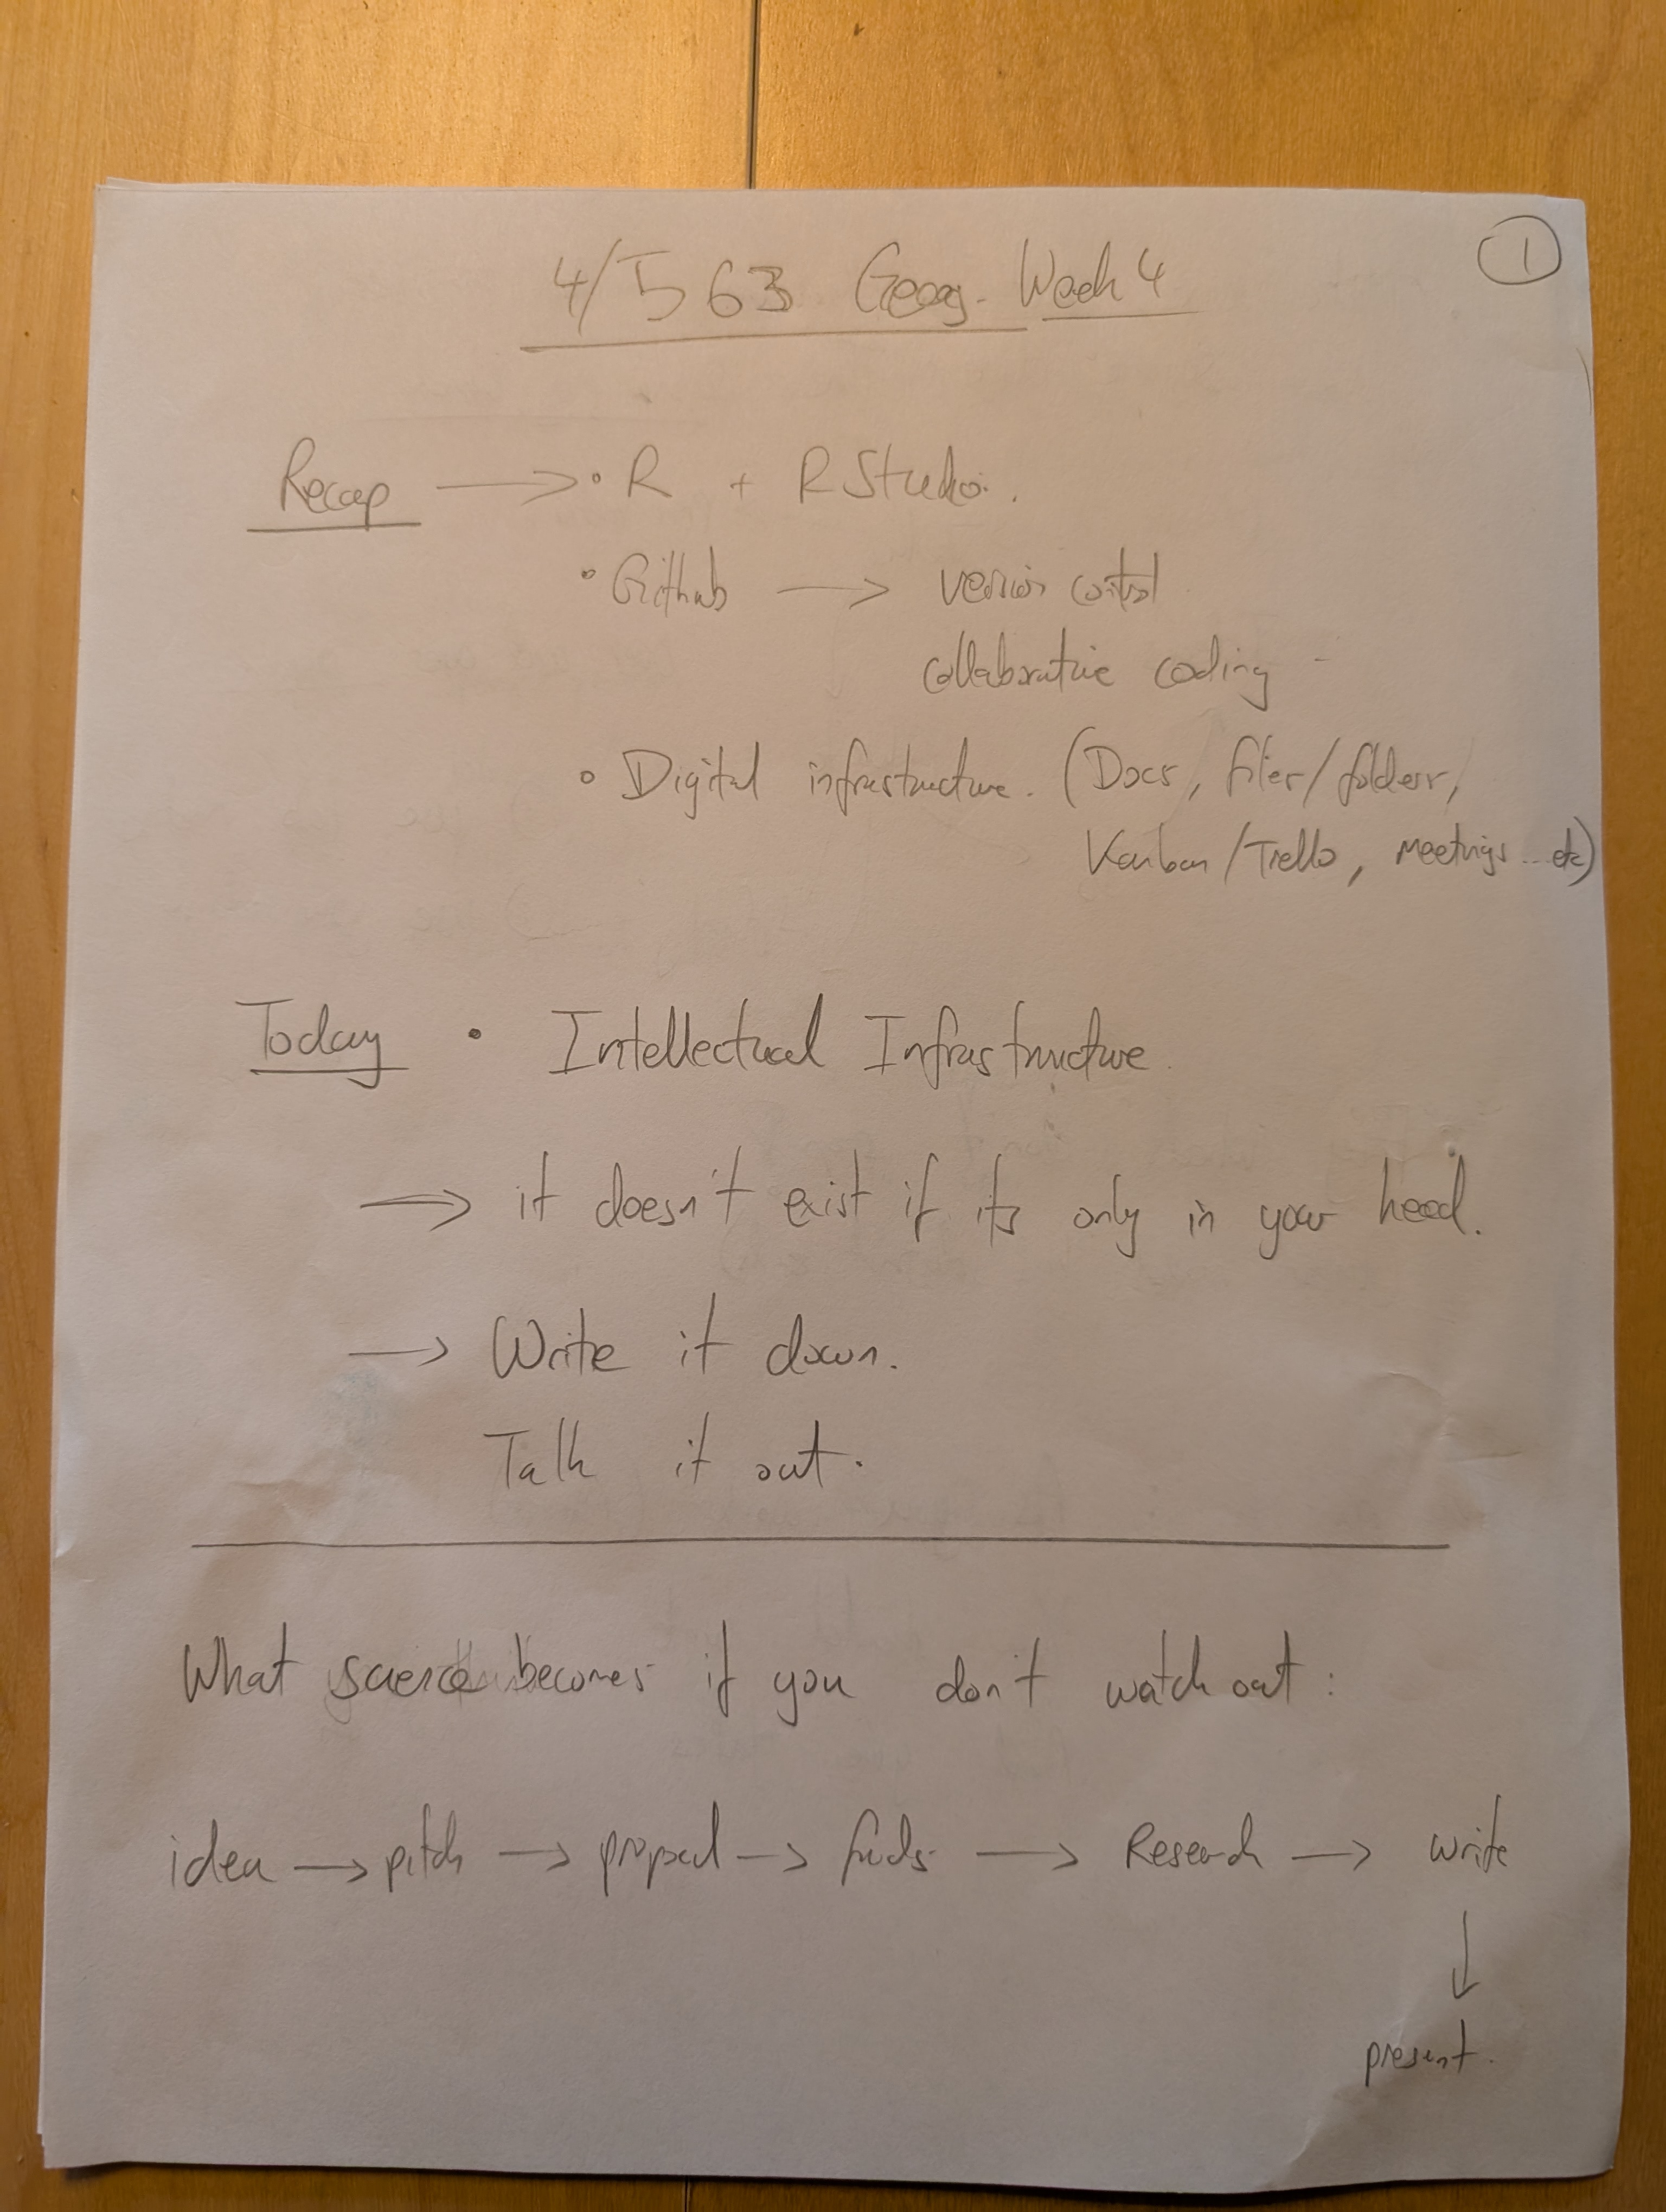 1
4/563 Geog. Week 4
Recap → • R + R Studio.
• Github → version control
collaborative coding
• Digital infrastructure. (Docs, files/folders,
Kanban/Trello, meetings...etc)
Today • Intellectual Infrastructure.
→ it doesn't exist if its only in your head.
→ Write it down.
Talk it out.
What science becomes if you don't watch out:
idea → pitch → proposal → funds → Research → write
↓
present.